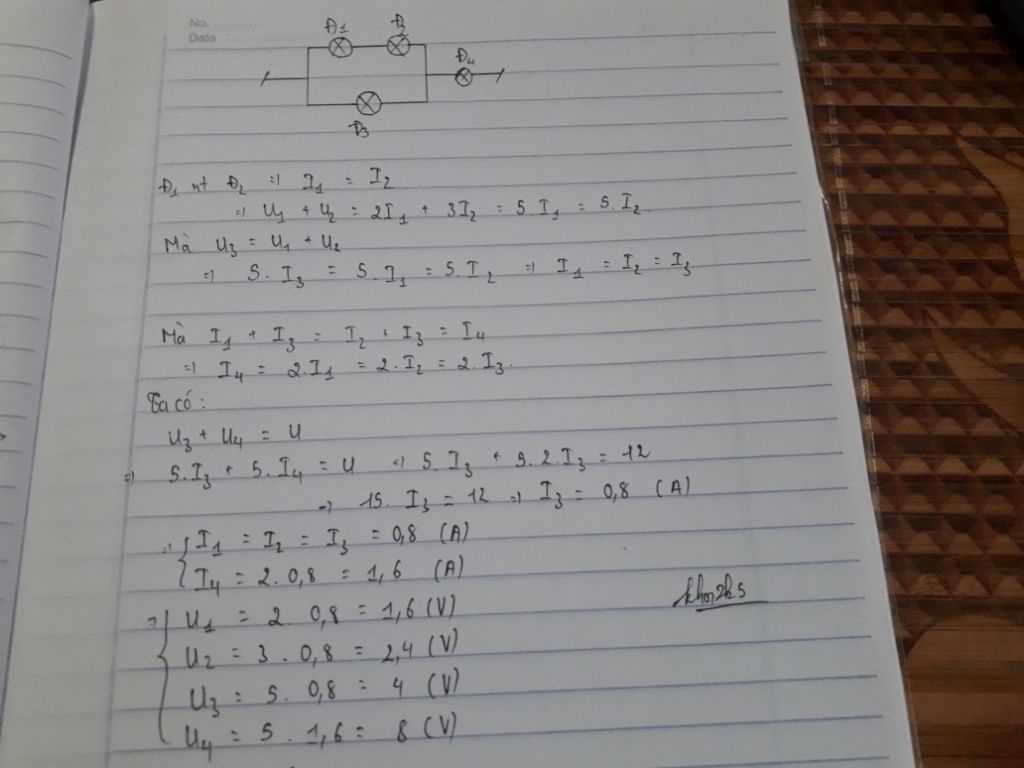 No. ............
Date ..................
Đ1 Đ2
Đ4
Đ3
Đ1 nt Đ2 => I1 = I2
=> U1 + U2 = 2I1 + 3I2 = 5.I1 = 5.I2
Mà U3 = U1 + U2
=> 5.I3 = 5.I1 = 5I2 => I1 = I2 = I3
Mà I1 + I3 = I2 + I3 = I4
=> I4 = 2.I1 = 2.I2 = 2.I3.
Ta có:
U3 + U4 = U
=> 5.I3 + 5.I4 = U <=> 5.I3 + 5.2.I3 = 12
=> 15.I3 = 12 => I3 = 0,8 (A)
=> { I1 = I2 = I3 = 0,8 (A)
I4 = 2.0,8 = 1,6 (A)
=> { U1 = 2 . 0,8 = 1,6 (V)
U2 = 3 . 0,8 = 2,4 (V)
U3 = 5 . 0,8 = 4 (V)
U4 = 5 . 1,6 = 8 (V)